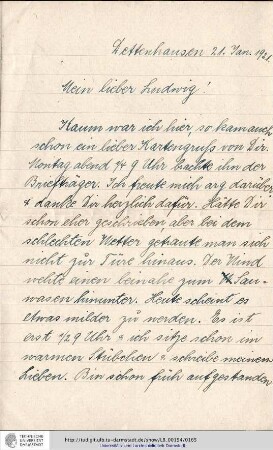 Dettenhausen 21. Jan. 1921.
Mein lieber Ludwig!
Kaum war ich hier, so kam auch
schon ein lieber Kartengruß von Dir.
Montag abend 1/4 9 Uhr brachte ihn der
Briefträger. Ich freute mich arg darüber
& danke Dir herzlich dafür. Hätte Dir
schon eher geschrieben aber bei dem
schlechten Wetter getraute man sich
nicht zur Türe hinaus. Der Wind
wehte einen beinahe zum Sau-
wasen hinunter. Heute scheint es
etwas milder zu werden. Es ist
erst 1/2 9 Uhr & ich sitze schon im
warmen Stübchen & schreibe meinem
Lieben. Bin schon früh aufgestanden
TECHNISCHE
UNIVERSITÄT
DARMSTADT